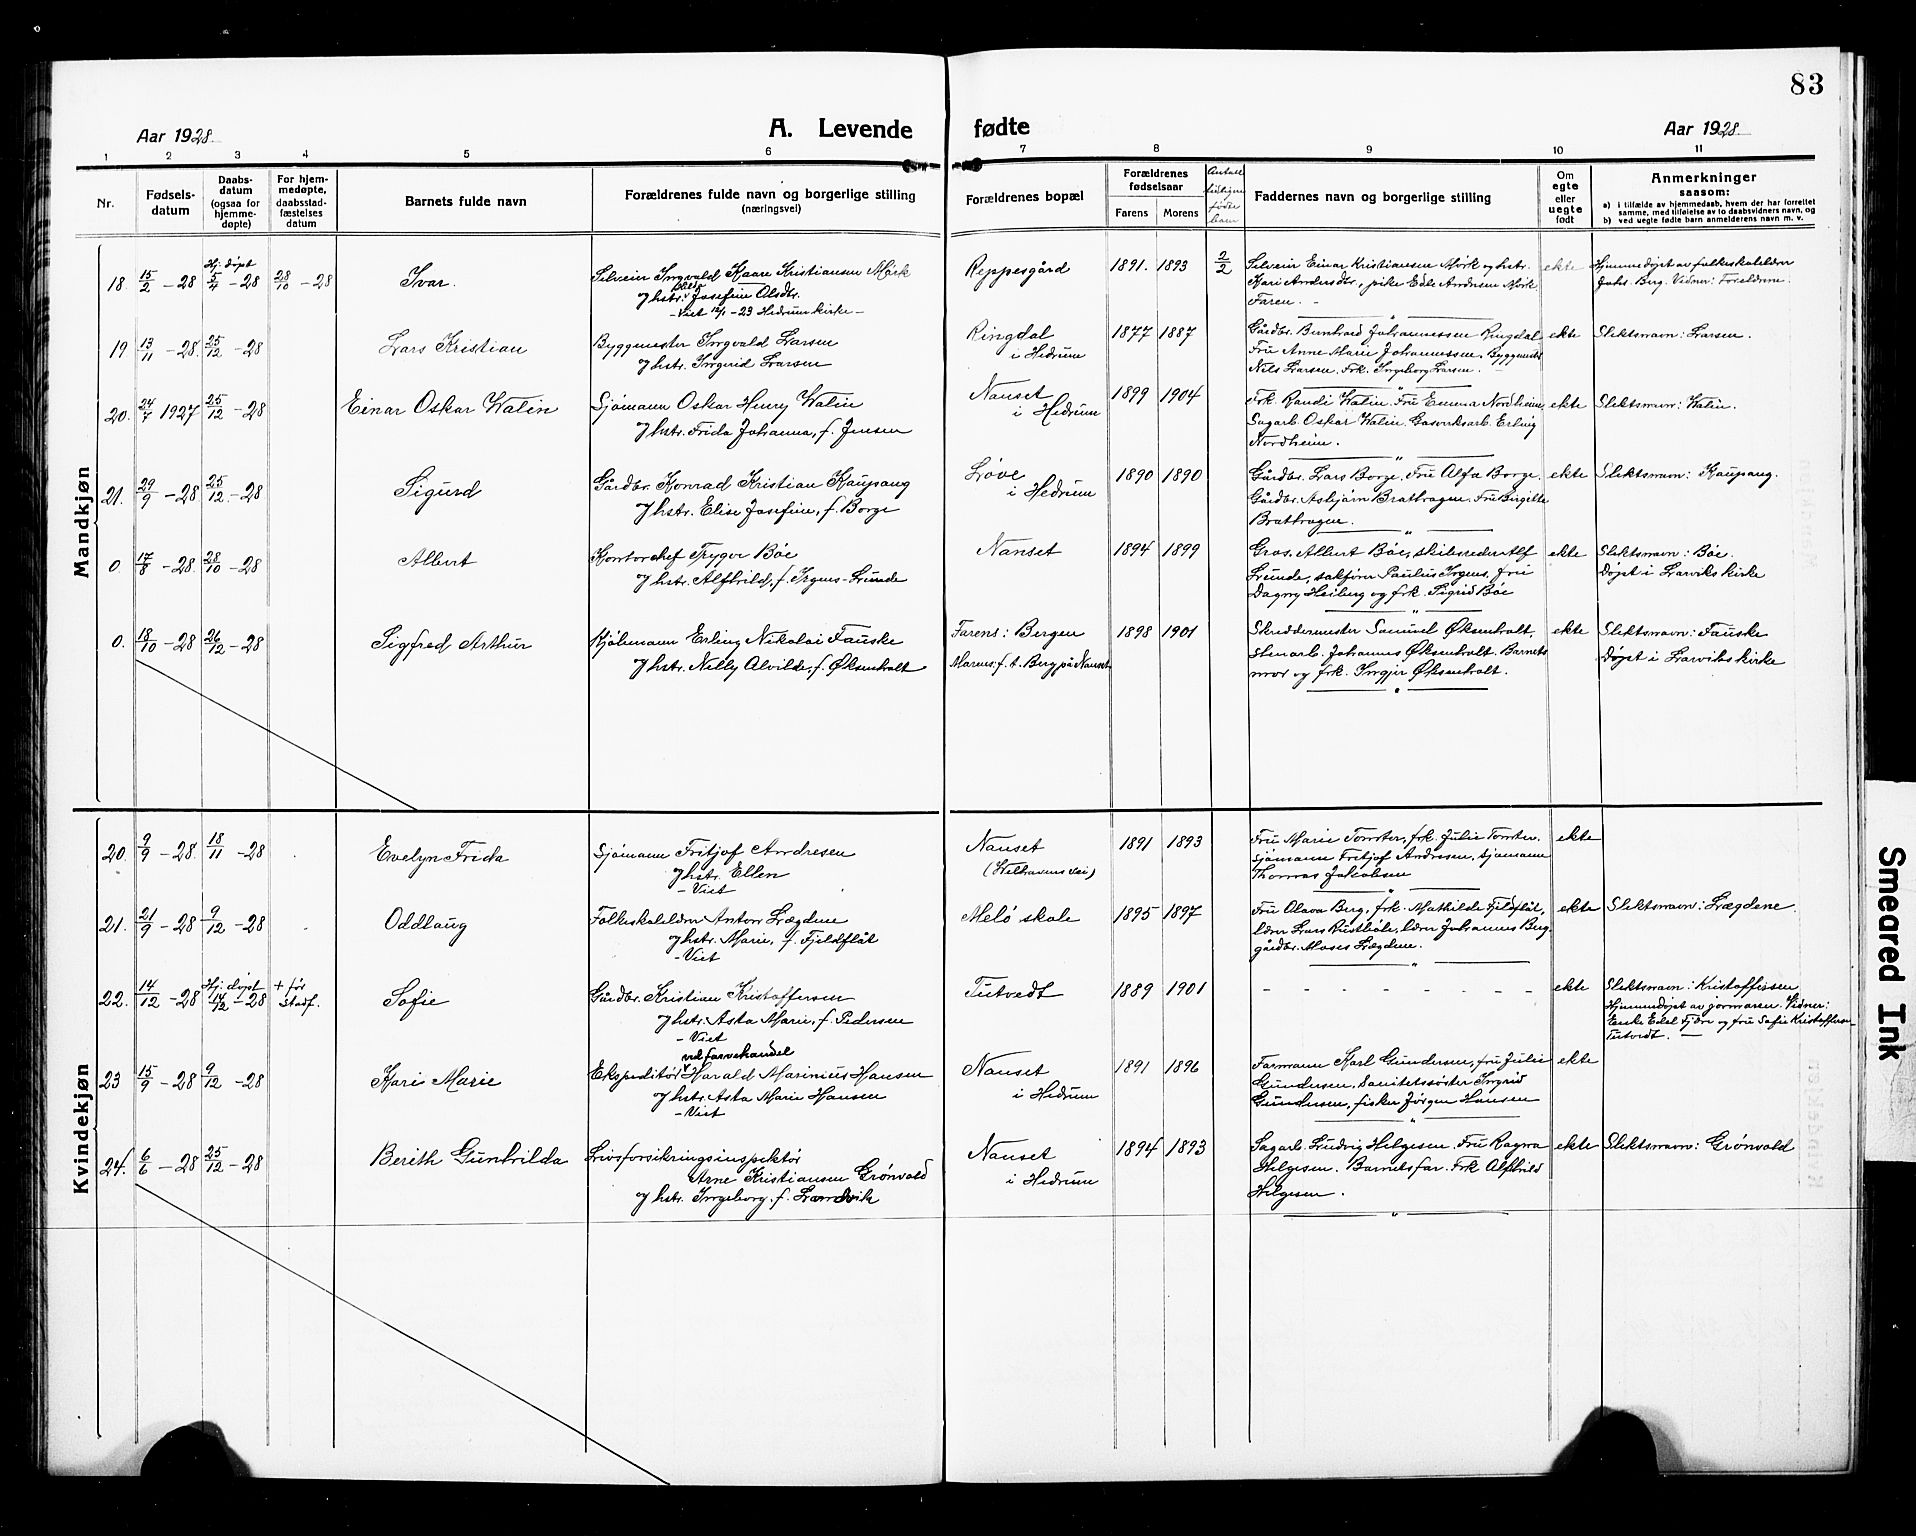 83
Aar 1928. A. Levende fødte Aar 1928.
1 2 3 4 5 6 7 8 9 10 11
Nr.
Fødsels-
datum
Daabs-
datum
(ogsaa for
hjemme-
døpte)
For hjem-
medøpte,
daabsstad-
fæstelses
datum
Barnets fulde navn
Forældrenes fulde navn og borgerlige stilling
(næringsvei)
Forældrenes bopæl
Forældrenes
fødselsaar
Farens Morens
Antall
tidligere
fødte
barn
Faddernes navn og borgerlige stilling
Om
egte
eller
uegte
født
Anmerkninger
saasom:
a) i tilfælde av hjemmedaab, hvem der har forrettet
samme, med tilføielse av to daabsvidners navn, og
b) ved uegte fødte barn anmelderens navn m. v.
Mandkjøn
18. 15/2 - 28 Hj. døpt 5/4 - 28 28/10 - 28 Ivar.
Ingvald Kaare Kristiansen Mørk
og hstr. Josefine Olsdtr.
- Viet 12/1 - 23 Hedrum kirke -
Reppesgård 1891. 1893 2/2
Einar Kristiansen Mørk og hstr.
Kari Andersdtr., pike Edle Andersen Mørk
Faren. -
ekte
Hjemmedøpt av folkeskolelærer
Johs. Berg. Vidner: Foreldrene.
19 13/11 - 28. 25/12 - 28 Lars Kristian
Byggmester Ingvald Larsen
og hstr. Ingerid Larsen
Ringdal
i Hedrum
1877 1887
Gårdbr. Bernhard Johannessen Ringdal
Fru Anne Marie Johannessen. Byggmest.
Nils Larsen. Frk. Ingeborg Larsen.
ekte Slektsnavn: Larsen.
20. 24/7 1927 25/12 - 28 Einar Oskar Walin
Sjømann Oskar Henry Walin
og hstr. Frida Johanna, f. Jensen
Nanset
i Hedrum
1899 1904
Frk. Randi Walin. Fru Emma Nordheim,
Sagarb. Oskar Walin. Gasverksarb. Erling
Nordheim.
ekte Slektsnavn: Walin.
21. 29/9 - 28 25/12 - 28 Sigurd
Gårdbr. Konrad Kristian Kaupang
og hstr. Elise Josefine, f. Borge
Løve
i Hedrum
1890 1890
Gårdbr. Lars Borge. Fru Alfa Borge.
Gårdbr. Asbjørn Brathagen. Fru Birgitte
Brathagen.
ekte Slektsnavn: Kaupang.
0 17/8 - 28 28/10 - 28 Albert
Kontorchef Trygve Bøe
og hstr. Alfhild, f. Irgens-Lunde
Nanset 1894 1899
Gros. Albert Bøe, skibsreder Alf
Lunde, sakfører Paulus Irgens, fru
Dagny Heiberg og frk. Sigrid Bøe
ekte Slektsnavn: Bøe.
Døpt i Larviks kirke
0. 18/10 - 28 26/12 - 28 Sigfred Arthur
Kjøbmann Erling Nikolai Fauske
og hstr. Nelly Alvilde, f. Øksenholt
Farens: Bergen
Morens: f. t. Berg på Nanset
1898 1901
Skreddermester Samuel Øksenholt,
stenarb. Johannes Øksenholt. Barnets
mor og frk. Ingjer Øksenholt.
ekte Slektsnavn: Fauske
Døpt i Larviks kirke
Kvindekjøn
20. 9/9 - 28. 18/11 - 28 Evelyn Frida
Sjømann Fritjof Andresen
og hstr. Ellen
- Viet
Nanset
(Welhavens vei)
1891 1893
Fru Marie Tomter, frk. Julie Tomter.
Sjømann Fritjof Andresen, sjømann
Thomas Jakobsen
ekte
21. 21/9 - 28 9/12 - 28 Oddlaug
Folkeskolelærer Anton Lægdene
og hstr. Marie, f. Fjeldflåt
- Viet
Melø skole 1895 1897
Fru Olava Berg, frk. Mathilde Fjeldflåt,
lærer Lars Rustbøle, lærer Johannes Berg
gårdbr. Moses Lægdene.
ekte Slektsnavn: Lægdene.
22. 14/12 - 28 Hj. døpt 14/12 - 28 + før stadf. Sofie
Gårdbr. Kristian Kristoffersen
og hstr. Asta Marie, f. Pedersen
- Viet
Tutvedt 1889 1901
- - - - - - - -
ekte Slektsnavn: Kristoffersen
Hjemmedøpt av jormoren. Vidner:
Enke Edel Fjære og fru Sofie Kristoffersen
Tutvedt. -
23 15/9 - 28 9/12 - 28 Kari Marie
ved farvehandel
Ekspeditør Harald Marinius Hansen
og hstr. Asta Marie Hansen
- Viet
Nanset
i Hedrum
1891 1896
Formann Karl Gundersen, fru Julie
Gundersen, Sanitetssøster Ingrid
Gundersen, fisker Jørgen Hansen
ekte
24. 6/6 - 28 25/12 - 28 Berith Gunhilda
Livsforsikringsinspektør
Arne Kristiansen Grønvold
og hstr. Ingeborg, f. Landvik
Nanset
i Hedrum
1894 1893
Sagarb. Ludvig Helgesen. Fru Ragna
Helgesen. Barnets far. Frk. Alfhild
Helgesen.
ekte Slektsnavn: Grønvold
Smeared Ink